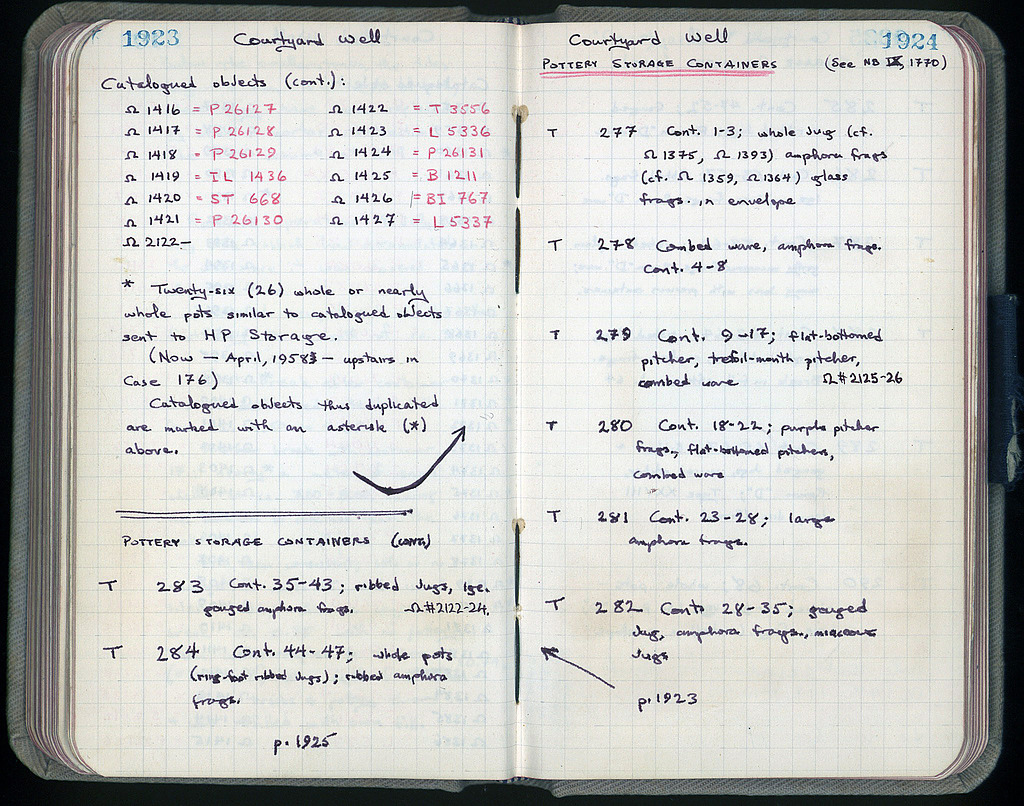 1923 Courtyard Well
Catalogued objects (cont.):
Ω 1416 = P 26127 Ω 1422 = T 3556
Ω 1417 = P 26128 Ω 1423 = L 5336
Ω 1418 = P 26129 Ω 1424 = P 26131
Ω 1419 = IL 1436 Ω 1425 = B 1211
Ω 1420 = ST 668 Ω 1426 = BI 767
Ω 1421 = P 26130 Ω 1427 = L 5337
Ω 2122–
* Twenty-six (26) whole or nearly
whole pots similar to catalogued objects
sent to HP Storage.
(Now – April, 1958 – upstairs in
Case 176)
Catalogued objects thus duplicated
are marked with an asterisk (*)
above.
POTTERY STORAGE CONTAINERS (CONT.)
T 283 Cont. 35-43; ribbed jugs, lge.
gouged amphora frags. Ω#2122-24.
T 284 Cont. 44-47; whole pots
(ring-foot ribbed jugs); ribbed amphora
frags.
p. 1925
Courtyard Well 1924
POTTERY STORAGE CONTAINERS (See NB IX, 1770)
T 277 Cont. 1-3; whole jug (cf.
Ω 1375, Ω 1393) amphora frags
(cf. Ω 1359, Ω 1364) glass
frags. in envelope
T 278 Combed ware, amphora frags.
Cont. 4-8
T 279 Cont. 9-17; flat-bottomed
pitcher, trefoil-mouth pitcher,
combed ware Ω#2125-26
T 280 Cont. 18-22; purple pitcher
frags., flat-bottomed pitchers,
combed ware
T 281 Cont. 23-28; large
amphora frags.
T 282 Cont. 28-35; gouged
jug, amphora frags., micaceous
jugs
p. 1923